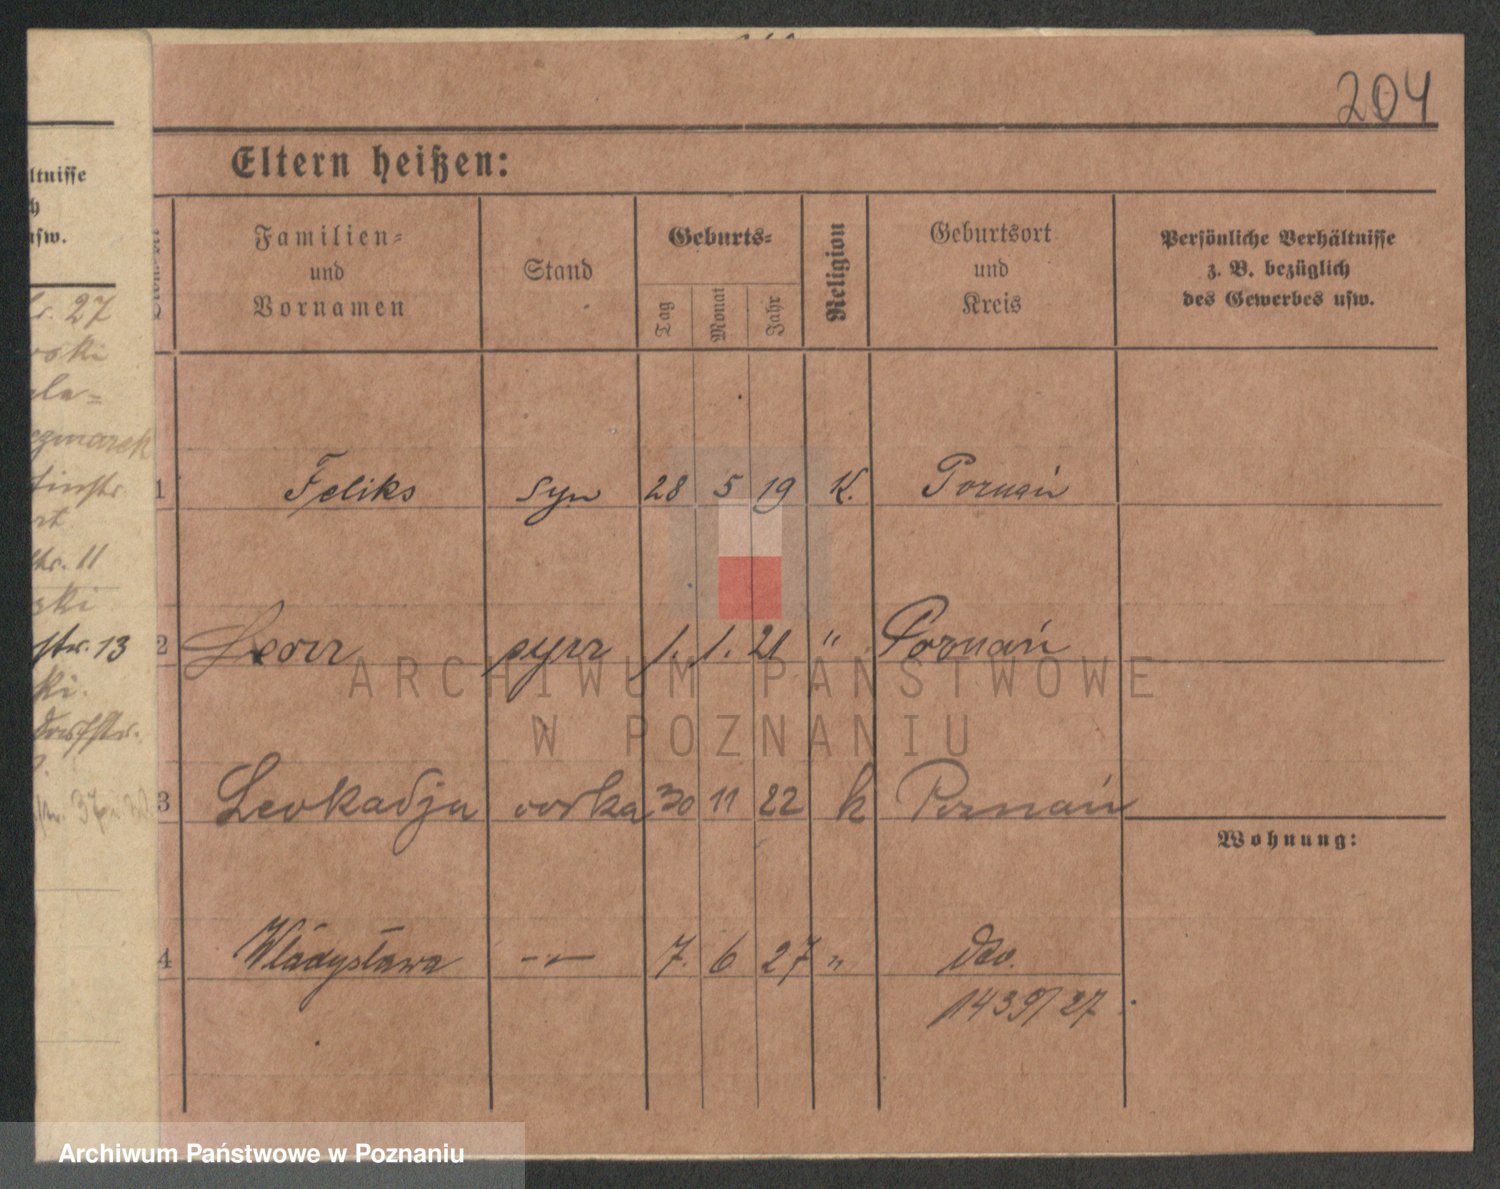 204
Eltern heißen:
ltnisse
h
usw.
Familien-
und
Vornamen
Stand
Geburts-
Tag
Monat
Jahr
Religion
Geburtsort
und
Kreis
Persönliche Verhältnisse
z. B. bezüglich
des Gewerbes usw.
27
ski
czmarek
str. 11
ski
str. 13
ki.
1 Feliks syn 28 5 19 K. Poznań
2 Leon syn 1. 1. 21 " Poznań
3 Leokadja córka 30 11 22 k Poznań
Wohnung:
4 Władysława -〃- 7. 6 27 " dto.
1439/27.
ARCHIWUM PAŃSTWOWE
W POZNANIU
Archiwum Państwowe w Poznaniu